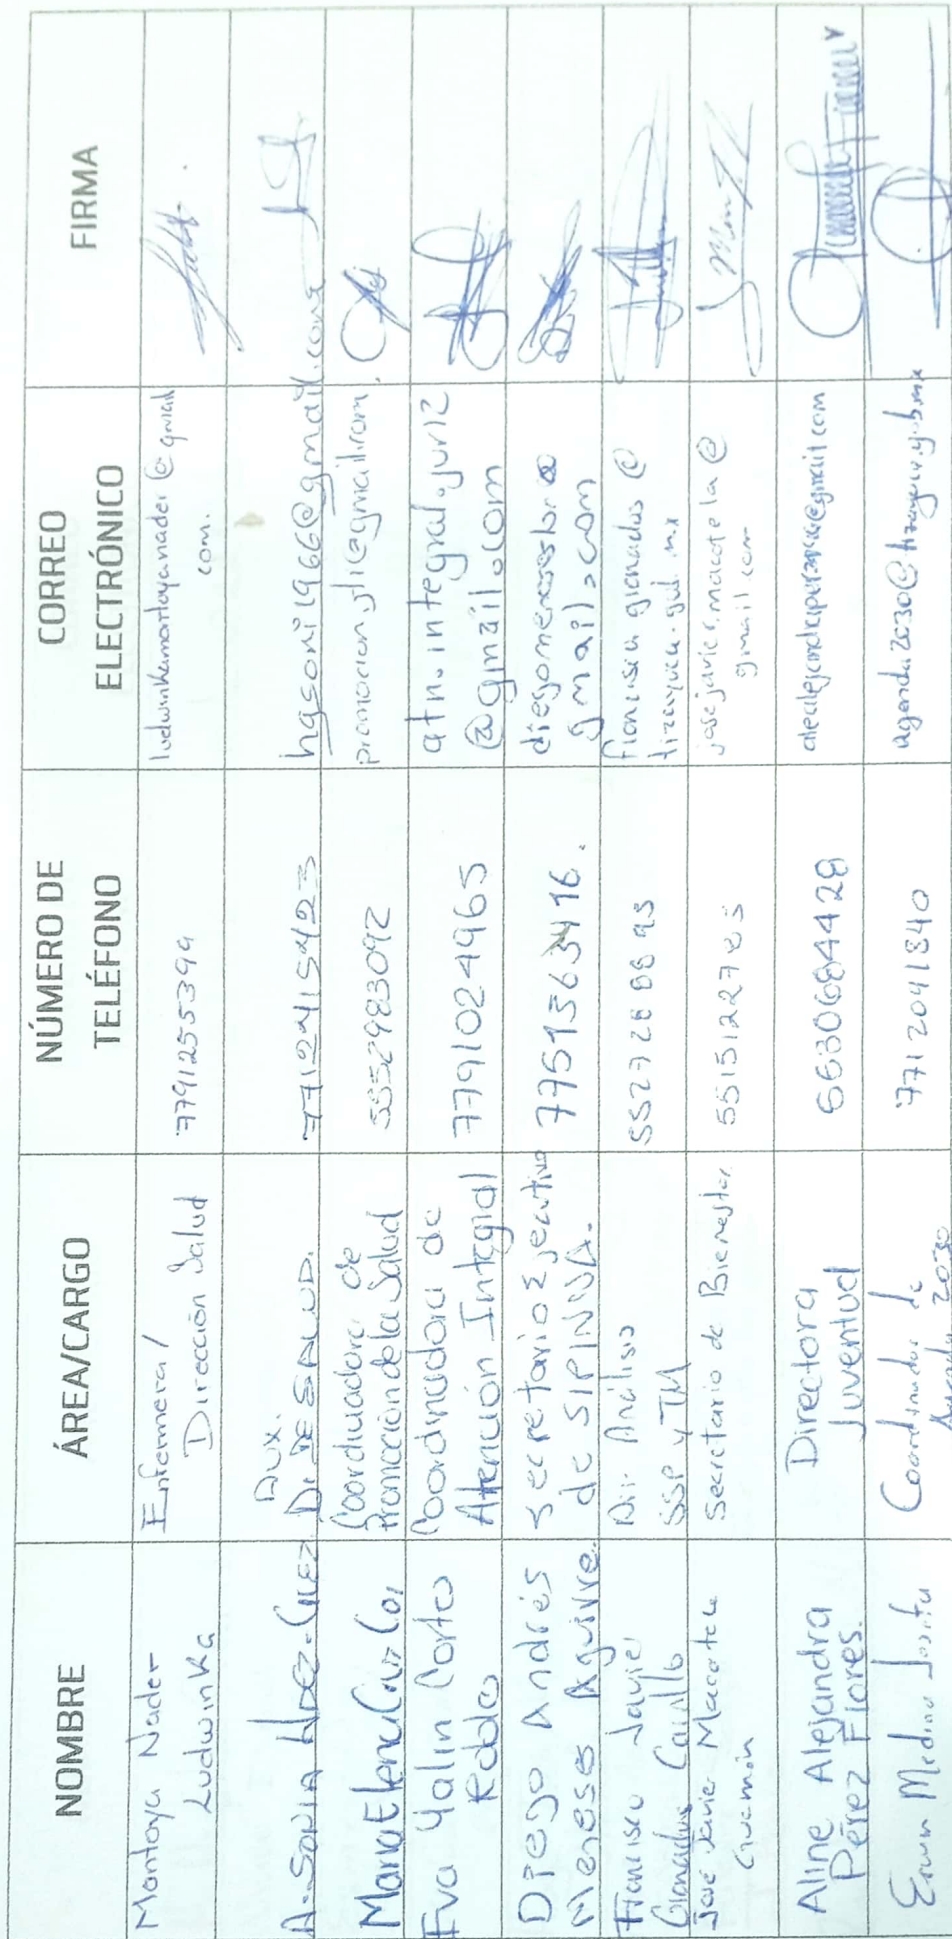 NOMBRE
ÁREA/CARGO
NÚMERO DE
TELÉFONO
CORREO
ELECTRÓNICO
FIRMA
Montoya Nader
Ludwinka
Enfermera/
Dirección Salud
7791255399
ludwinkamontoyanader@gmail
com.
A. SONIA HDEZ. GLEZ
Aux.
D. DE SALUD.
7712415423
hgsoni1966@gmail.com
Maria Elena Cruz
Coordinadora de
Promoción de la Salud
5552983092
Eva Yalin Corto
Coordinadora de
Atención Integral
7791024965
atn.integral.jur12
@gmail.com
Diego Andrés
Meneses Aguirre
Secretario Ejecutivo
de SIPINNA.
7751563416.
gmail.com
Francisco Javier
Granados
Dir. Análisis
SSP y TM
francisco.granados@
José Javier Macotela
Guzmán
Secretario de Bienestar
5515122785
josejavier.macotela@
gmail.com
Aline Alejandra
Pérez Flores.
Directora
Juventud
5630684428
Medina
Coordinador de
Agenda 2030
7712041840